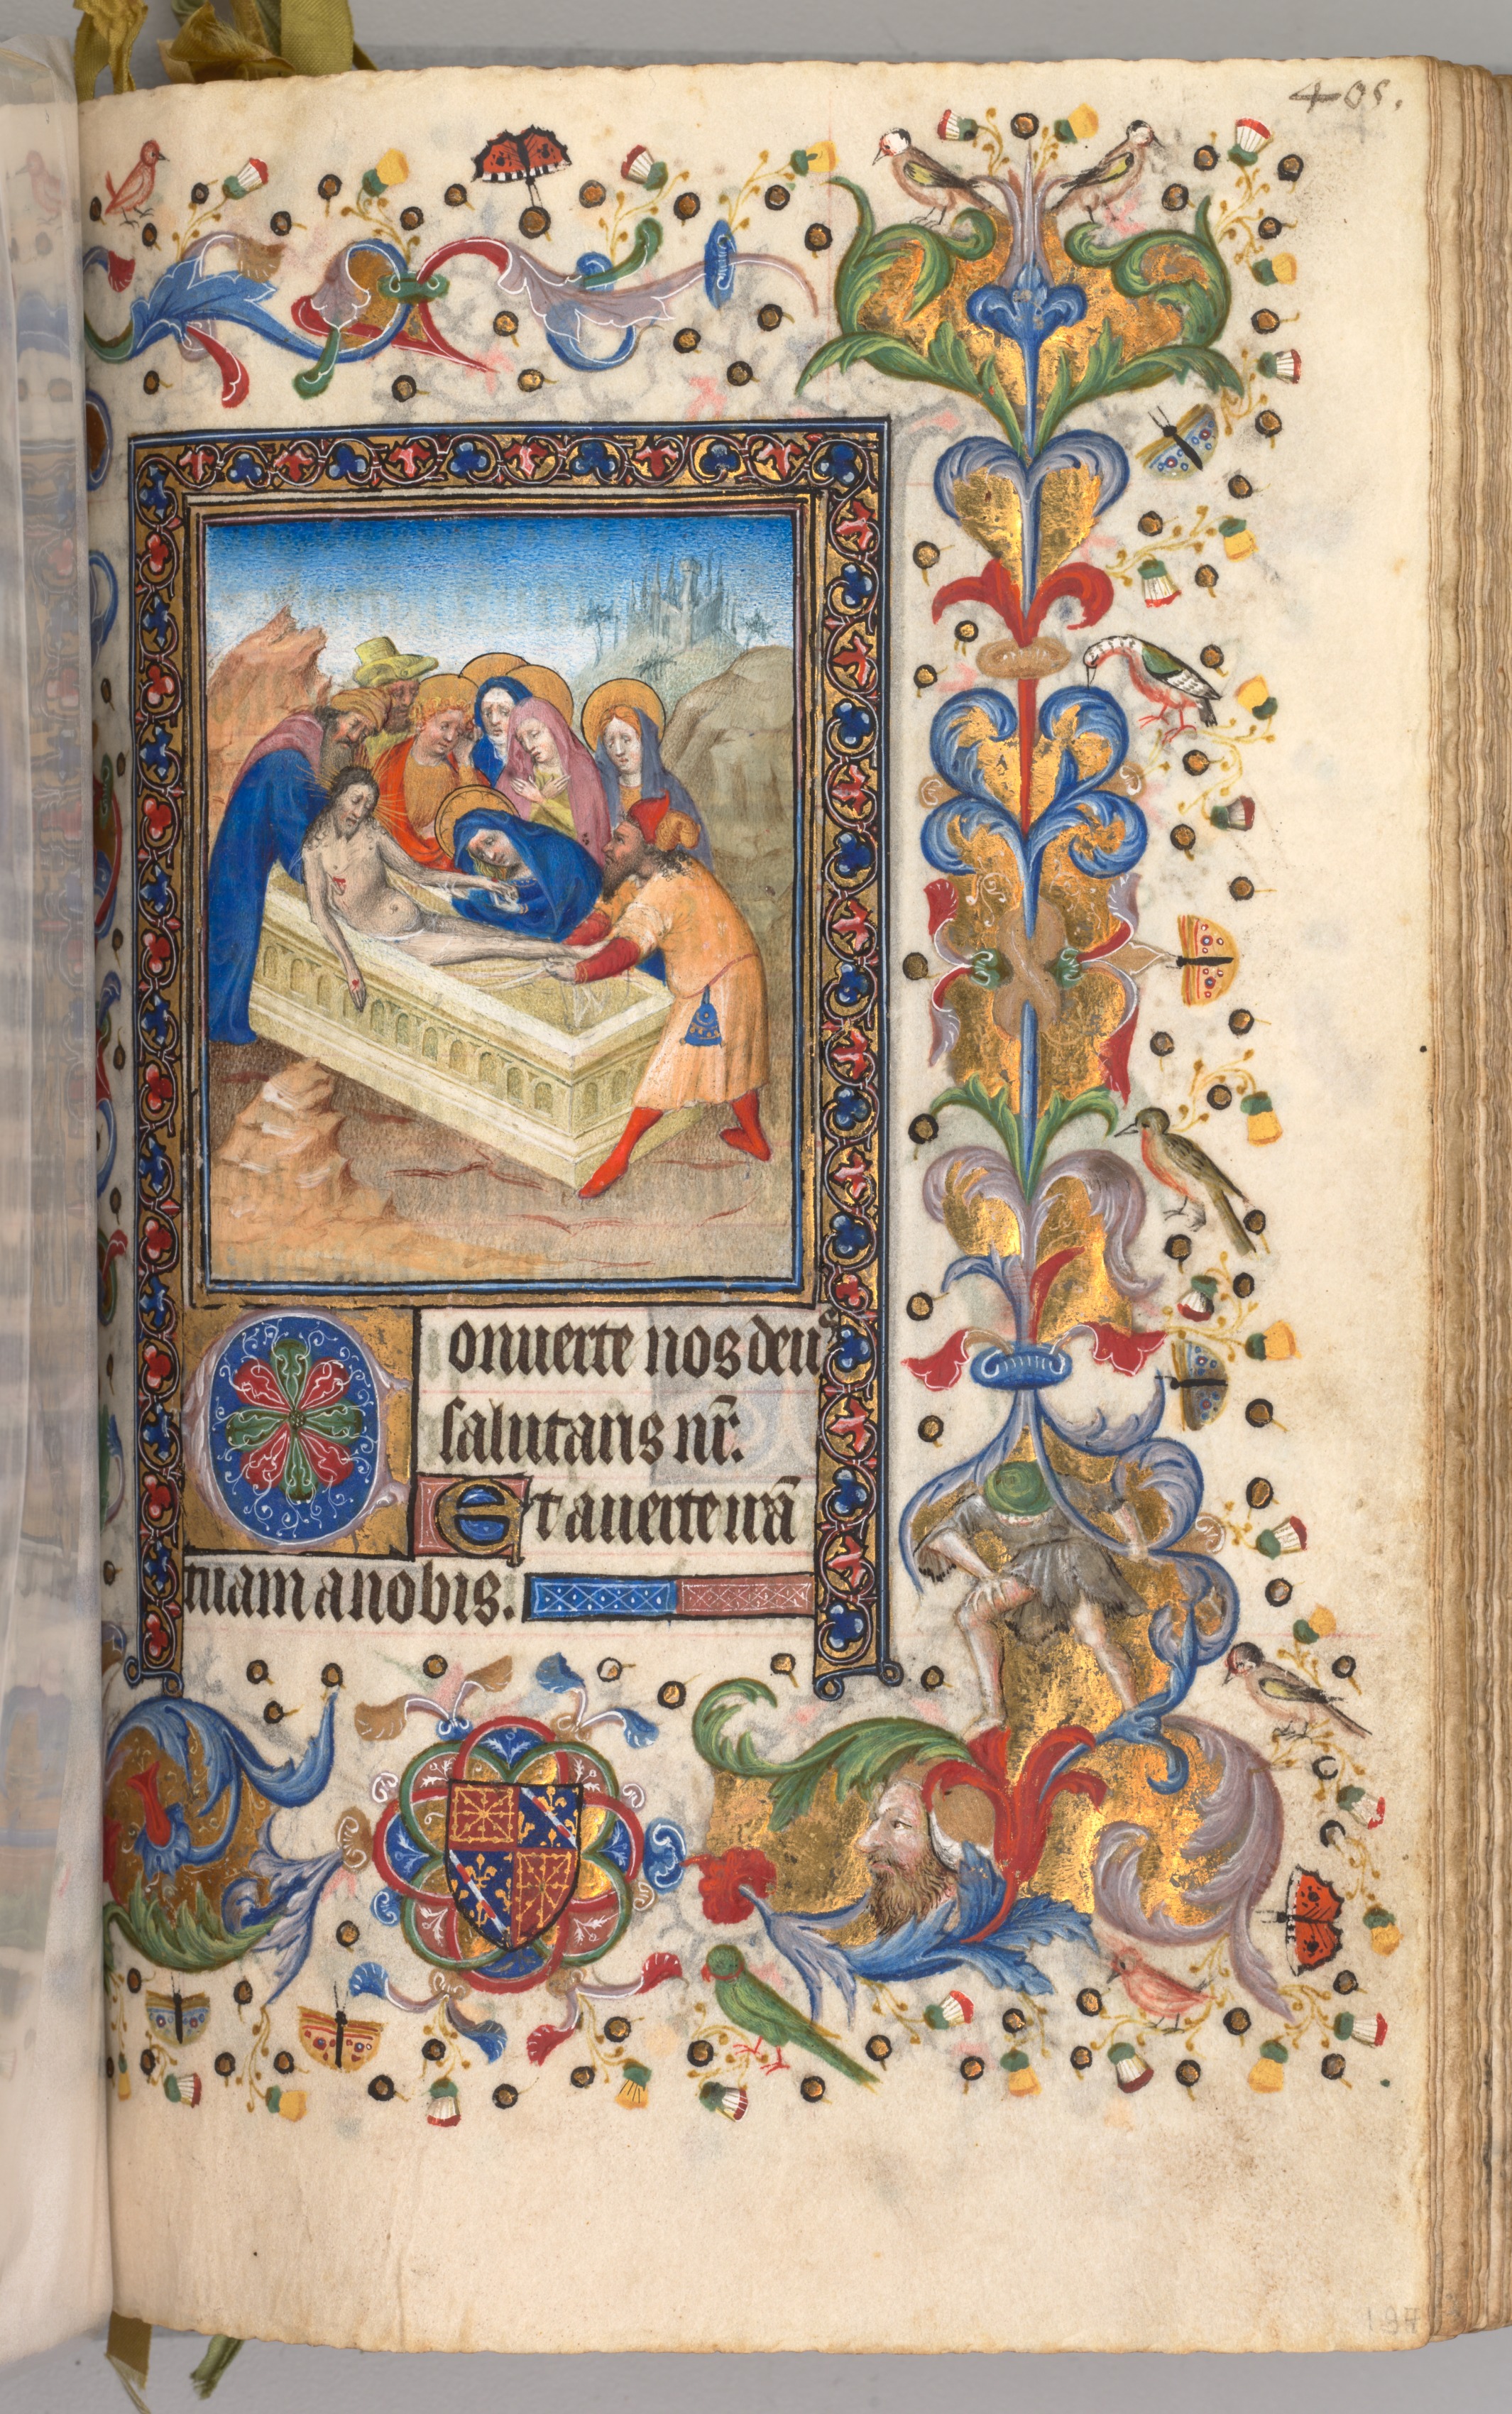 405.
Conuerte nos deus
salutaris nr̄.
Et auerte irā
tuam a nobis.
197